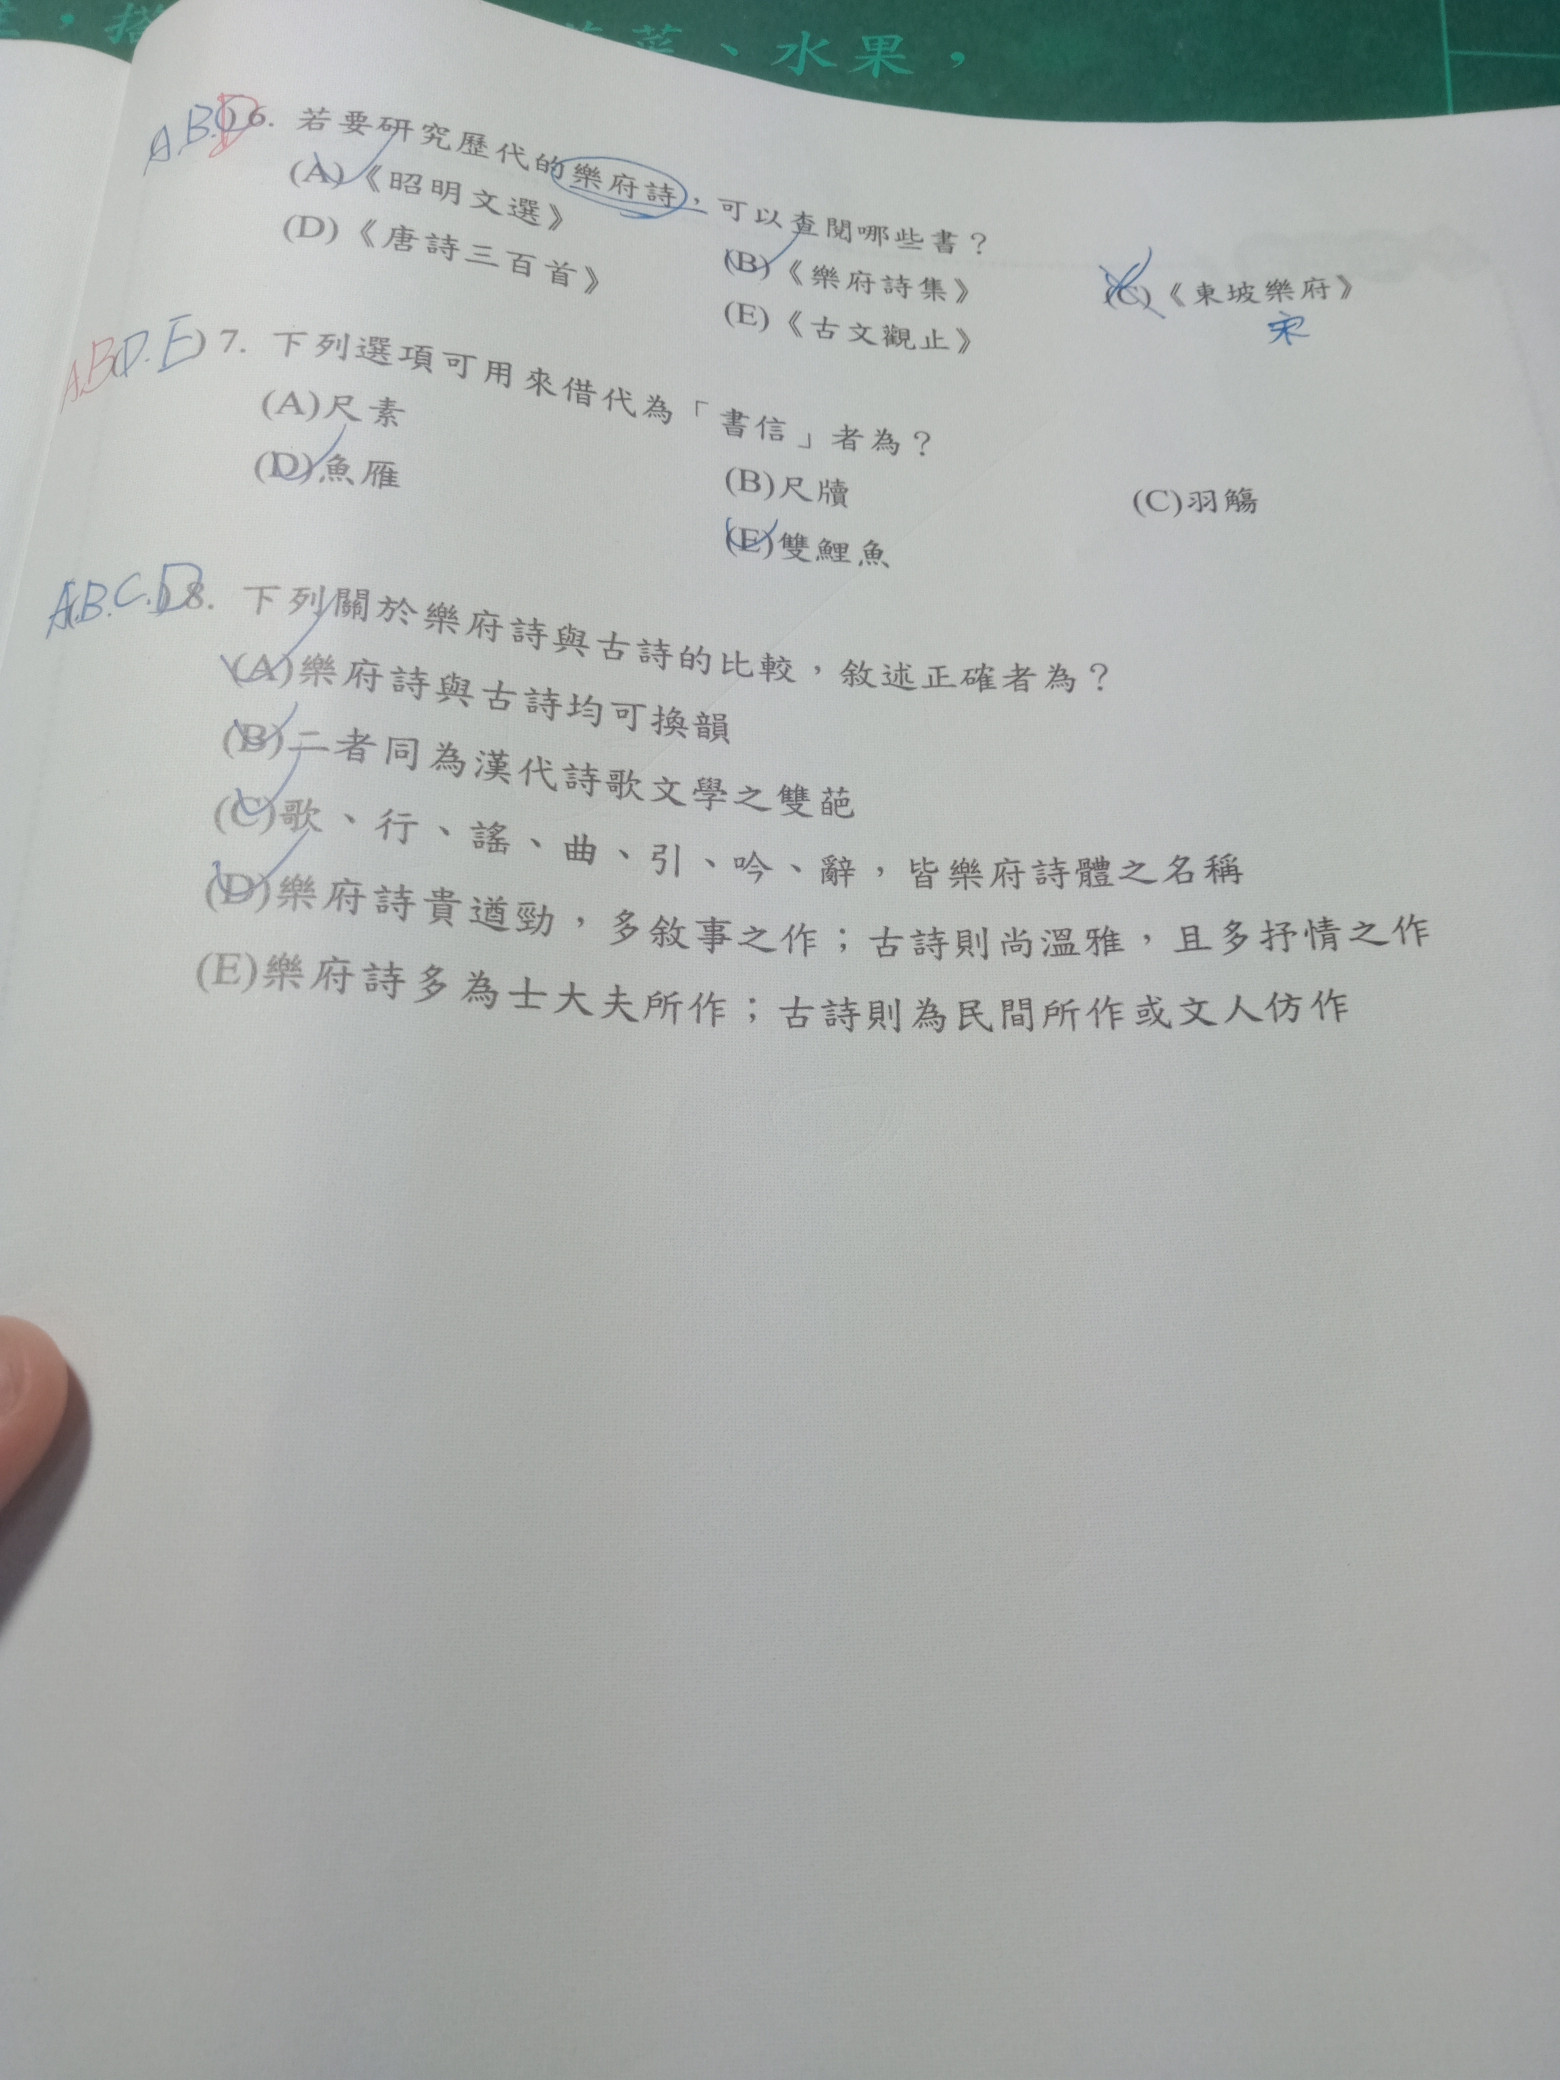 、水果，
A.B.D 6. 若要研究歷代的樂府詩，可以查閱哪些書？
(A)《昭明文選》 (B)《樂府詩集》 (C)《東坡樂府》
宋
(D)《唐詩三百首》 (E)《古文觀止》
A.B.D.E)7. 下列選項可用來借代為「書信」者為？
(A)尺素 (B)尺牘 (C)羽觴
(D)魚雁 (E)雙鯉魚
A.B.C.D 8. 下列關於樂府詩與古詩的比較，敘述正確者為？
(A)樂府詩與古詩均可換韻
(B)二者同為漢代詩歌文學之雙葩
(C)歌、行、謠、曲、引、吟、辭，皆樂府詩體之名稱
(D)樂府詩貴遒勁，多敘事之作；古詩則尚溫雅，且多抒情之作
(E)樂府詩多為士大夫所作；古詩則為民間所作或文人仿作